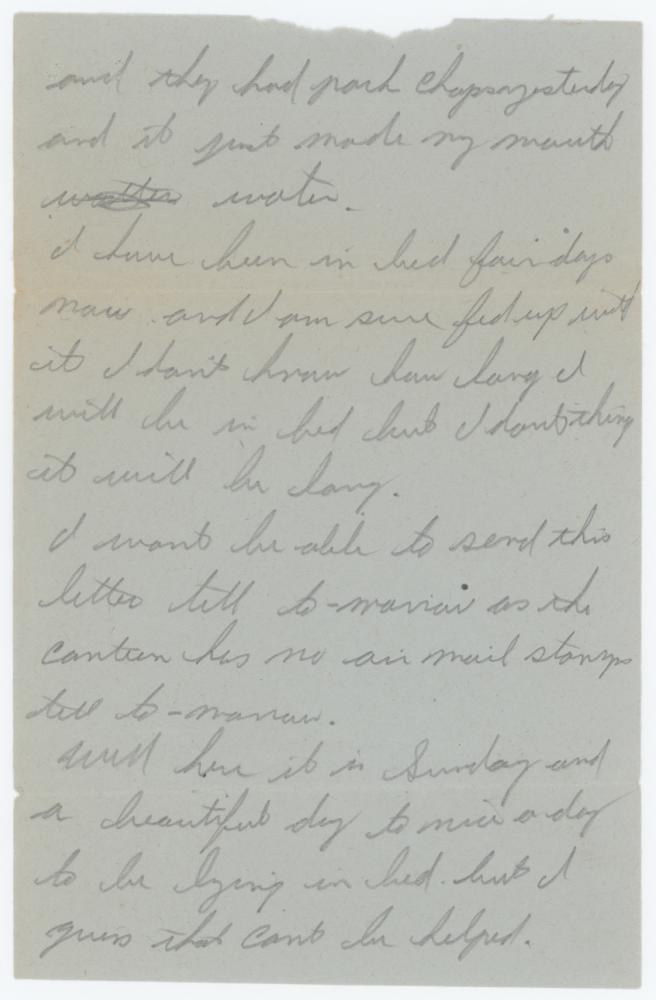 and they had pork Chops yesterday
and it just made my mouth
water.
I have been in bed four days
now and I am sure fed up with
it I don't know how long I
will be in bed but I dont thing
it will be long.
I wont be able to send this
letter till to-morrow as the
canteen has no air mail stamps
till to-morrow.
Well here it is Sunday and
a beautiful day to nice a day
to be lying in bed. but I
guess that cant be helped.